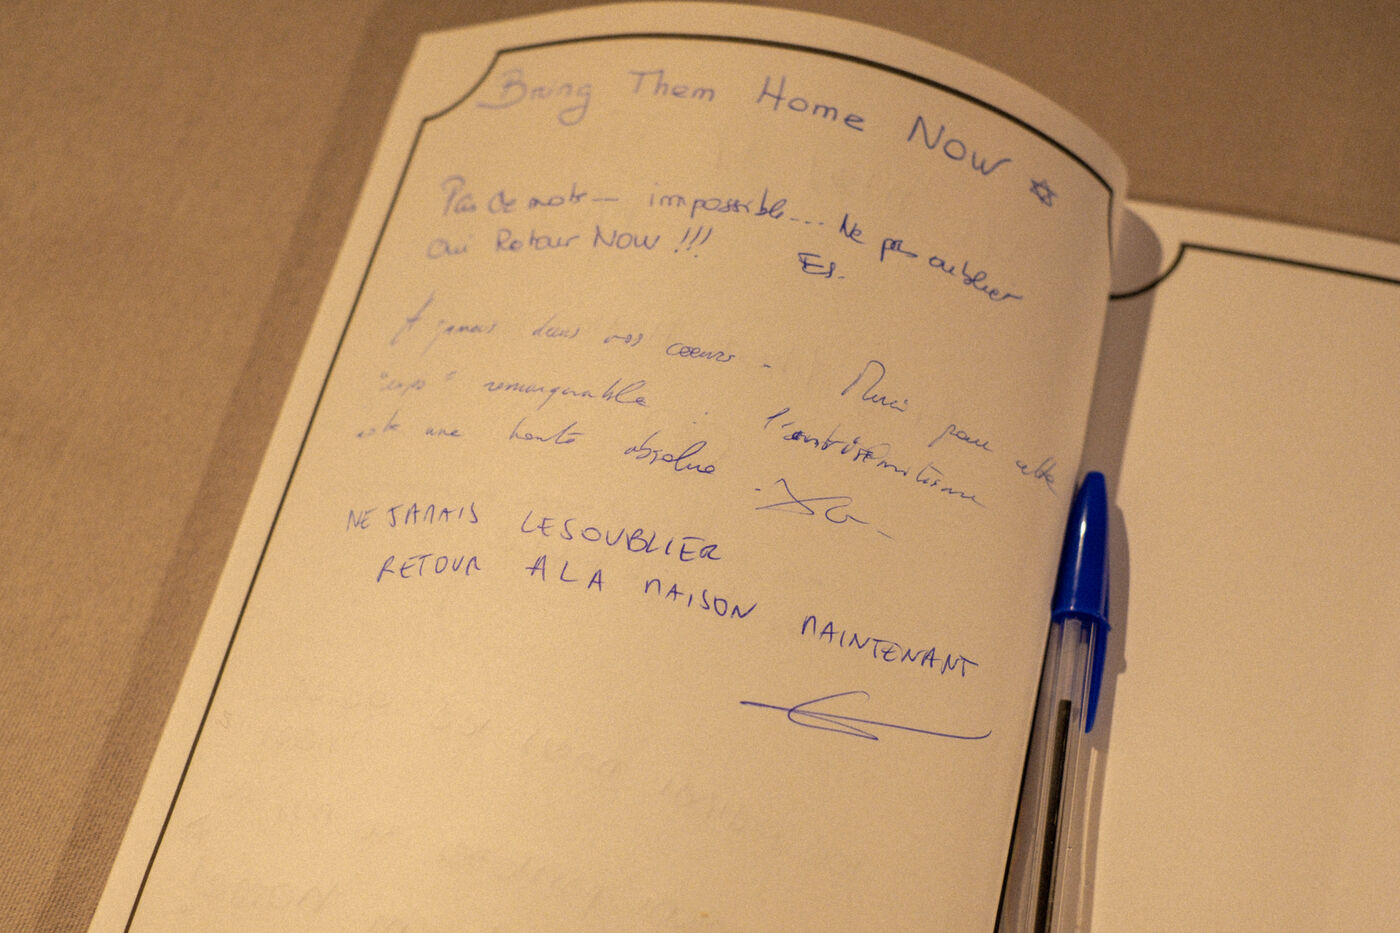 Bring Them Home Now ✡
Pas de mots — impossible... Ne pas oublier
Oui Retour NOW !!!
A jamais dans nos coeurs. Merci pour cette
"expo" remarquable. l'antisémitisme
est une honte absolue.
NE JAMAIS LES OUBLIER
RETOUR A LA MAISON MAINTENANT